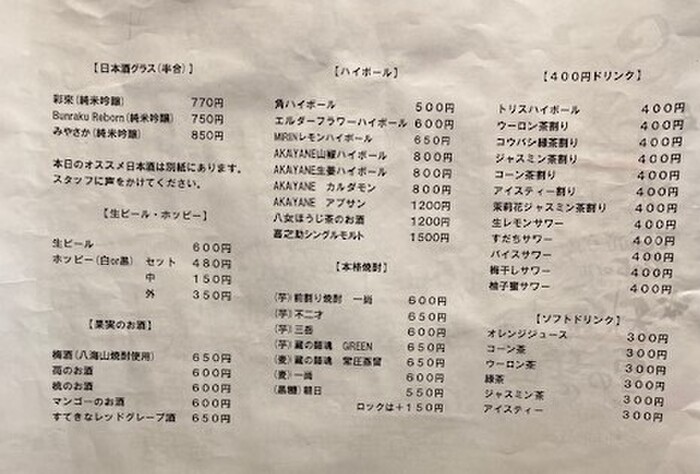 【日本酒グラス(半合)】
彩來(純米吟醸) 770円
Bunraku Reborn(純米吟醸) 750円
みやさか(純米吟醸) 850円
本日のオススメ日本酒は別紙にあります。
スタッフに声をかけてください。
【生ビール・ホッピー】
生ビール 600円
ホッピー(白or黒) セット 480円
中 150円
外 350円
【果実のお酒】
梅酒(八海山焼酎使用) 650円
苺のお酒 600円
桃のお酒 600円
マンゴーのお酒 600円
すてきなレッドグレープ酒 650円
【ハイボール】
角ハイボール 500円
エルダーフラワーハイボール 600円
MIRINレモンハイボール 650円
AKAYANE山椒ハイボール 800円
AKAYANE生姜ハイボール 800円
AKAYANE カルダモン 800円
AKAYANE アブサン 1200円
八女ほうじ茶のお酒 1200円
嘉之助シングルモルト 1500円
【本格焼酎】
(芋)前割り焼酎 一尚 600円
(芋)不二才 650円
(芋)三岳 600円
(芋)蔵の師魂 GREEN 650円
(麦)蔵の師魂 常圧蒸留 650円
(麦)一尚 600円
(黒糖)朝日 550円
ロックは+150円
【400円ドリンク】
トリスハイボール 400円
ウーロン茶割り 400円
コウバシ緑茶割り 400円
ジャスミン茶割り 400円
コーン茶割り 400円
アイスティー割り 400円
茉莉花ジャスミン茶割り 400円
生レモンサワー 400円
すだちサワー 400円
バイスサワー 400円
梅干しサワー 400円
柚子蜜サワー 400円
【ソフトドリンク】
オレンジジュース 300円
コーン茶 300円
ウーロン茶 300円
緑茶 300円
ジャスミン茶 300円
アイスティー 300円